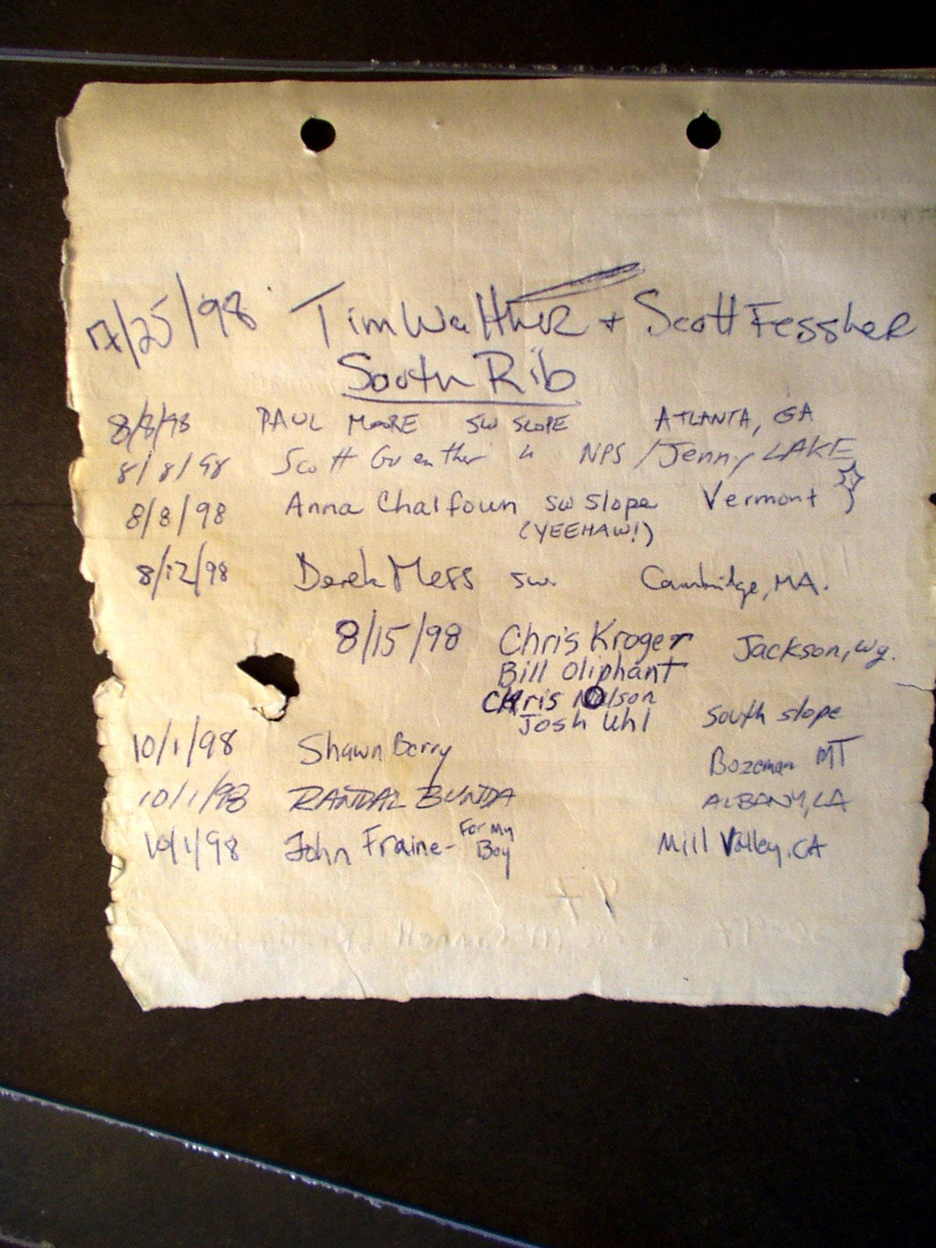 7/25/98 Tim Walther + Scott Fessher
South Rib
8/8/98 PAUL MOORE SW SLOPE ATLANTA, GA
8/8/98 Scott Guenther " NPS / Jenny LAKE
8/8/98 Anna Chalfoun SW slope Vermont
(YEEHAW!)
8/12/98 Derek Mess SW. Cambridge, MA.
8/15/98 Chris Kroger Jackson, Wy.
Bill Oliphant
Chris Nolson
Josh Uhl South slope
10/1/98 Shawn Borry Bozeman MT
10/1/98 RANDAL BUNDA ALBANY, LA
10/1/98 John Fraine - For My Boy Mill Valley, CA